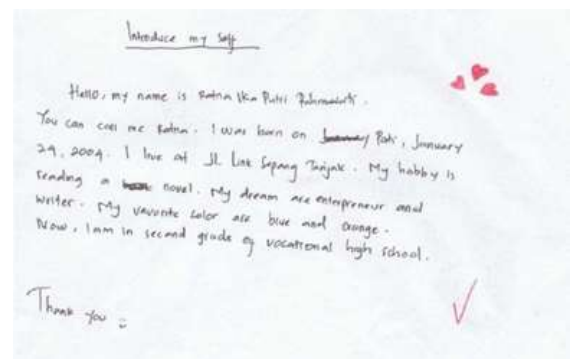 Introduce my Self
Hello, my name is Ratna Ika Putri Rahmawati.
You can call me Ratna. I was born on Pati, January
29, 2004. I live at Jl. Link Tanjak. My hobby is
reading a novel. My dream are enterpreneur and
writer. My vavorite color are blue and orange.
Now, I am in second grade of vocational high school.
Thank you